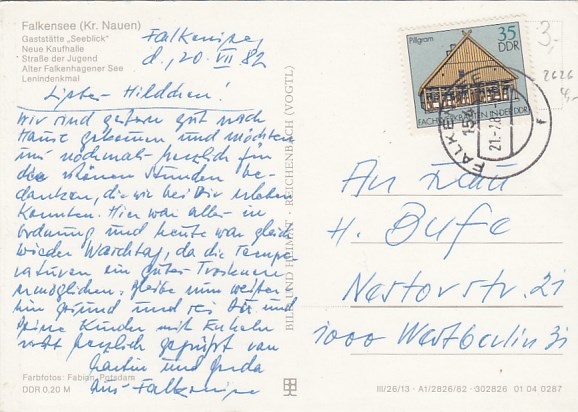 Falkensee (Kr. Nauen)
Gaststätte „Seeblick"
Neue Kaufhalle
Straße der Jugend
Alter Falkenhagener See
Lenindenkmal
Falkensee,
d., 20. VII 82
Liebes Hildchen!
Wir sind gestern gut nach
Hause gekommen und möchten
uns nochmals herzlich für
die schönen Stunden be-
danken, die wir bei Dir erleben
konnten. Hier war alles in
Ordnung und heute war gleich
wieder Waschtag, da die Tempe-
raturen ein gutes Trocknen
ermöglichen. Bleibe nun weiter-
hin gesund und sei Du und
Deine Kinder mit Enkeln
recht herzlich gegrüßt von
und
aus Falkensee
Farbfotos: Fabian, Potsdam
DDR 0,20 M
BILD UND HEIMAT · REICHENBACH (VOGTL)
Pillgram
35
DDR
FACHWERKBAUTEN IN DER DDR
FALKENSEE
154
21.-7.8
r
3,-
2626
4,-
An Frau
H. Bufe
Nestorstr. 21
1000 Westberlin 31
III/26/13 · A1/2826/82 · 302826 01 04 0287